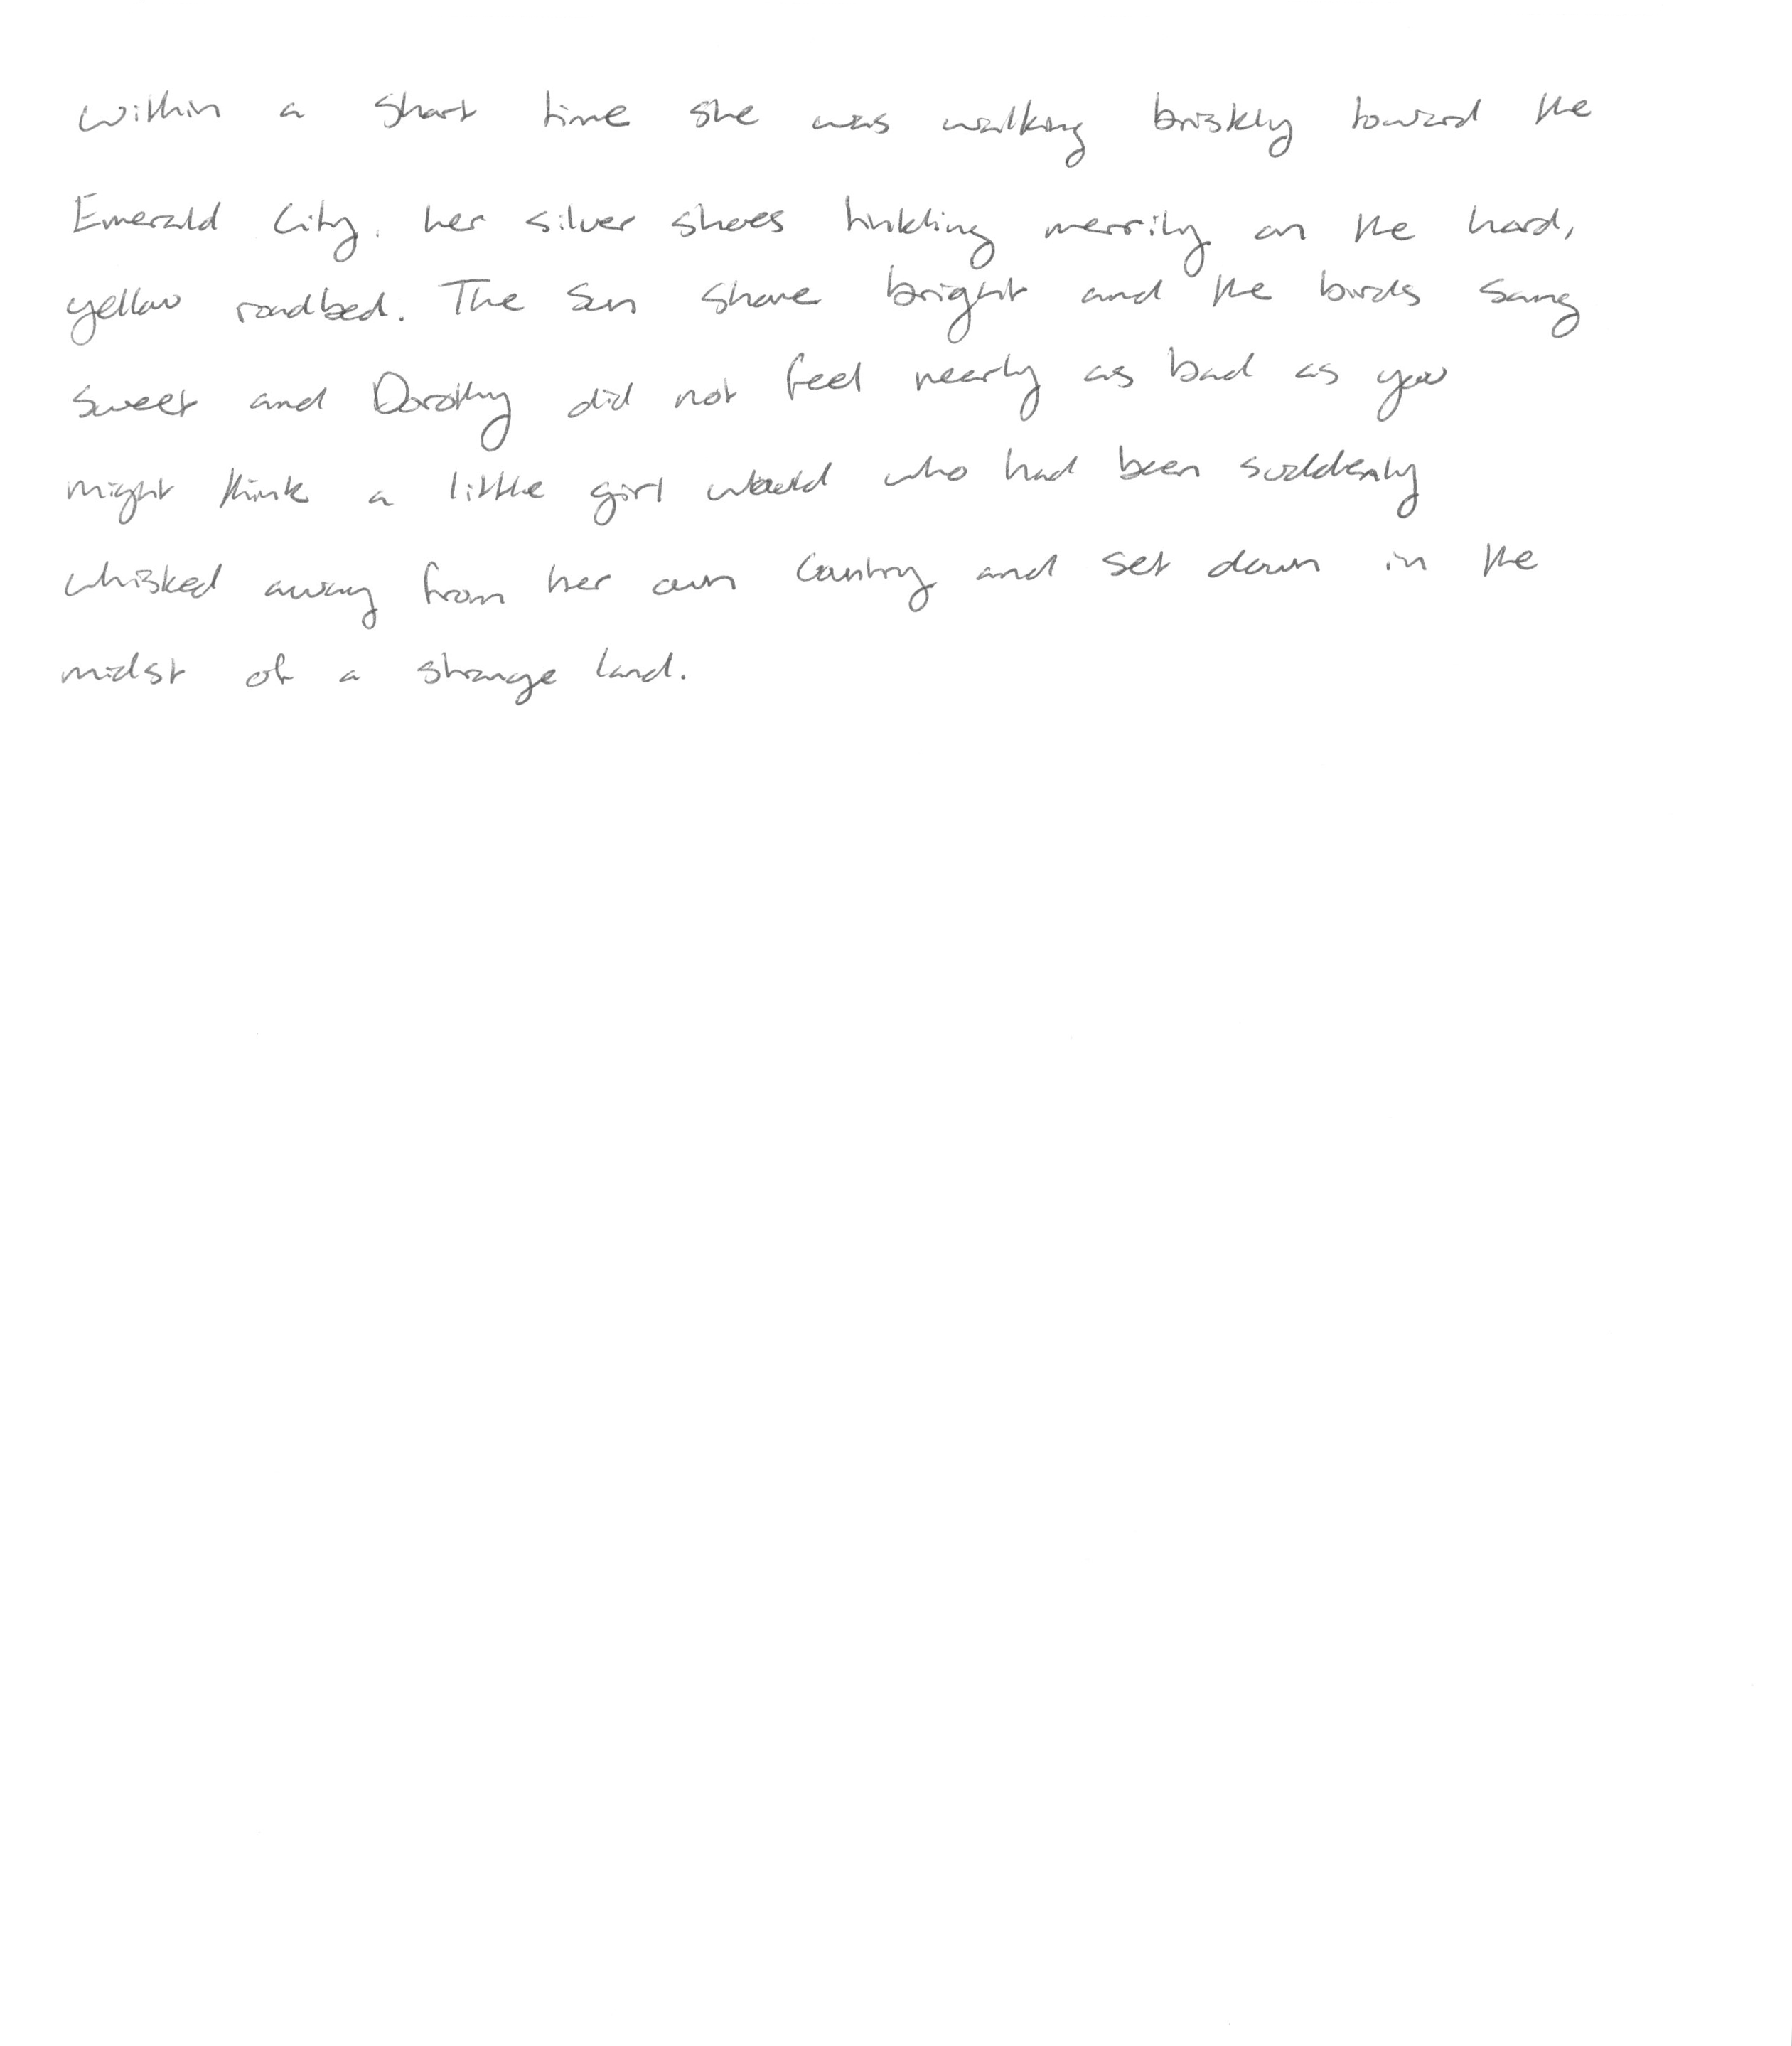 Within a short time she was walking briskly toward the
Emerald City. her silver shoes tinkling merrily on the hard,
yellow roadbed. The sun shone bright and the birds sang
sweet and Dorothy did not feel nearly as bad as you
might think a little girl would who had been suddenly
whisked away from her own country and set down in the
midst of a strange land.